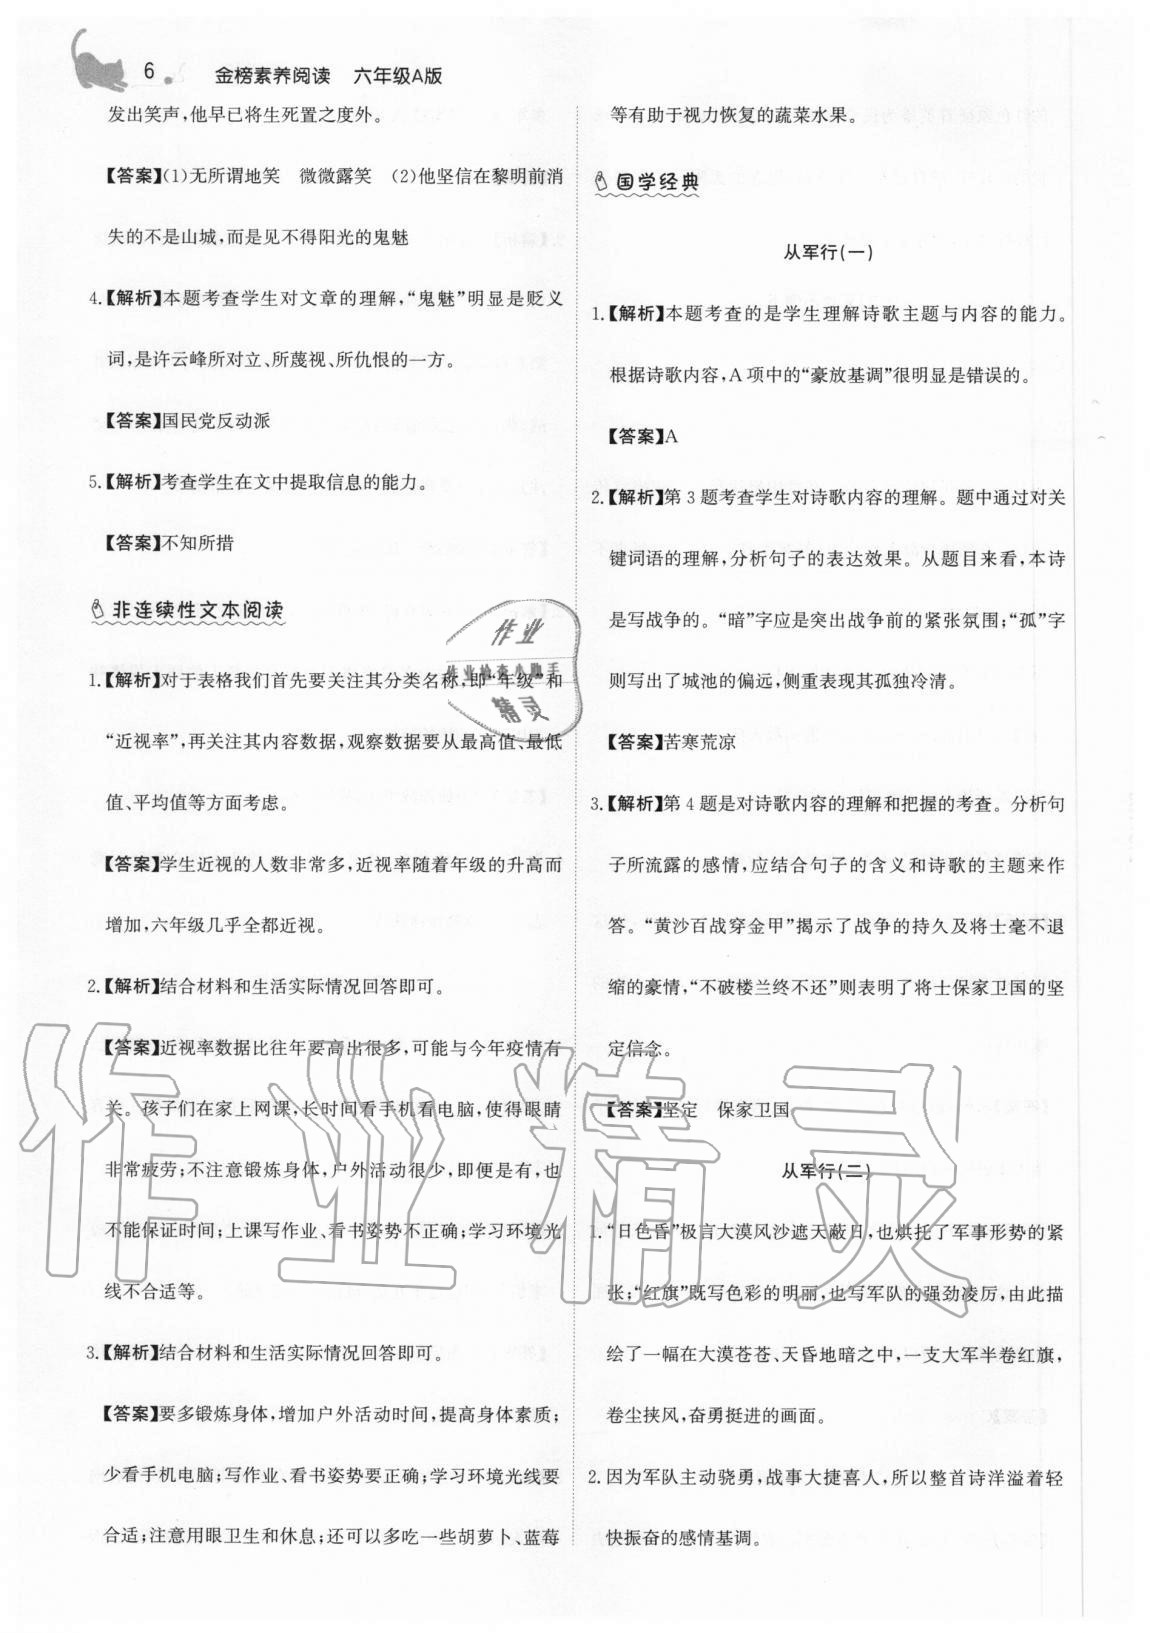 6
金榜素养阅读 六年级A版
发出笑声,他早已将生死置之度外。
【答案】(1)无所谓地笑 微微露笑 (2)他坚信在黎明前消
失的不是山城,而是见不得阳光的鬼魅
4.【解析】本题考查学生对文章的理解,“鬼魅”明显是贬义
词,是许云峰所对立、所蔑视、所仇恨的一方。
【答案】国民党反动派
5.【解析】考查学生在文中提取信息的能力。
【答案】不知所措
非连续性文本阅读
1.【解析】对于表格我们首先要关注其分类名称,即“年级”和
“近视率”,再关注其内容数据,观察数据要从最高值、最低
值、平均值等方面考虑。
【答案】学生近视的人数非常多,近视率随着年级的升高而
增加,六年级几乎全都近视。
2.【解析】结合材料和生活实际情况回答即可。
【答案】近视率数据比往年要高出很多,可能与今年疫情有
关。孩子们在家上网课,长时间看手机看电脑,使得眼睛
非常疲劳;不注意锻炼身体,户外活动很少,即便是有,也
不能保证时间;上课写作业、看书姿势不正确;学习环境光
线不合适等。
3.【解析】结合材料和生活实际情况回答即可。
【答案】要多锻炼身体,增加户外活动时间,提高身体素质;
少看手机电脑;写作业、看书姿势要正确;学习环境光线要
合适;注意用眼卫生和休息;还可以多吃一些胡萝卜、蓝莓
等有助于视力恢复的蔬菜水果。
国学经典
从军行(一)
1.【解析】本题考查的是学生理解诗歌主题与内容的能力。
根据诗歌内容,A项中的“豪放基调”很明显是错误的。
【答案】A
2.【解析】第3题考查学生对诗歌内容的理解。题中通过对关
键词语的理解,分析句子的表达效果。从题目来看,本诗
是写战争的。“暗”字应是突出战争前的紧张氛围;“孤”字
则写出了城池的偏远,侧重表现其孤独冷清。
【答案】苦寒荒凉
3.【解析】第4题是对诗歌内容的理解和把握的考查。分析句
子所流露的感情,应结合句子的含义和诗歌的主题来作
答。“黄沙百战穿金甲”揭示了战争的持久及将士毫不退
缩的豪情,“不破楼兰终不还”则表明了将士保家卫国的坚
定信念。
【答案】坚定 保家卫国
从军行(二)
1.“日色昏”极言大漠风沙遮天蔽日,也烘托了军事形势的紧
张;“红旗”既写色彩的明丽,也写军队的强劲凌厉,由此描
绘了一幅在大漠苍苍、天昏地暗之中,一支大军半卷红旗,
卷尘挟风,奋勇挺进的画面。
2.因为军队主动骁勇,战事大捷喜人,所以整首诗洋溢着轻
快振奋的感情基调。
作业
作业检查小助手
精灵
作业精灵